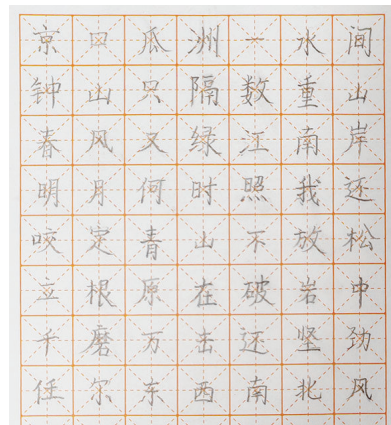 京口瓜洲一水间
钟山只隔数重山
春风又绿江南岸
明月何时照我还
咬定青山不放松
立根原在破岩中
千磨万击还坚劲
任尔东西南北风